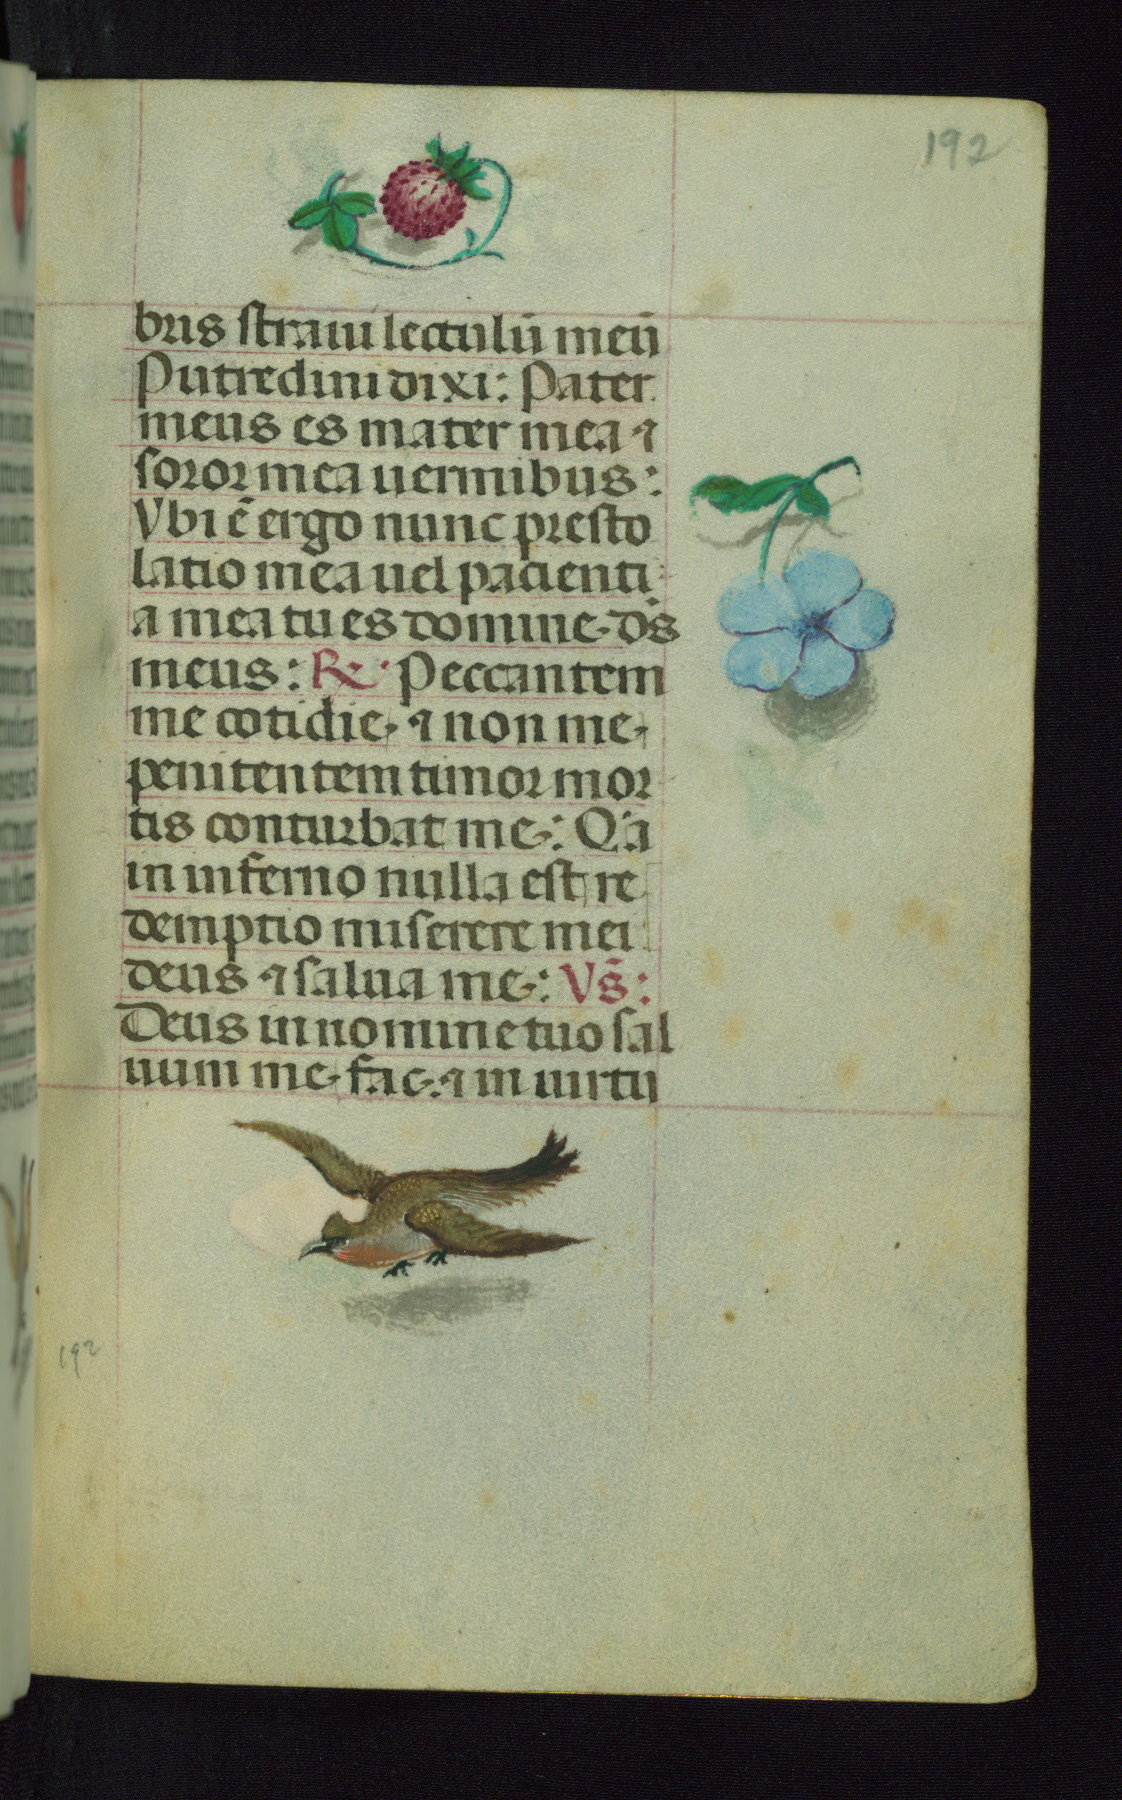 192
bris straui lectulū meū
Putredini dixi: Pater
meus es mater mea ⁊
soror mea uermibus:
Vbi ē ergo nunc presto
latio mea uel pacienti
a mea tu es domine ds̄
meus: R̶ Peccantem
me cotidie, ⁊ non me
penitentem timor mor
tis conturbat me: Q'a
in inferno nulla est re
demptio miserere mei
deus ⁊ salua me: Vs̄:
Deus in nomine tuo sal
uum me fac: ⁊ in uirtu
192